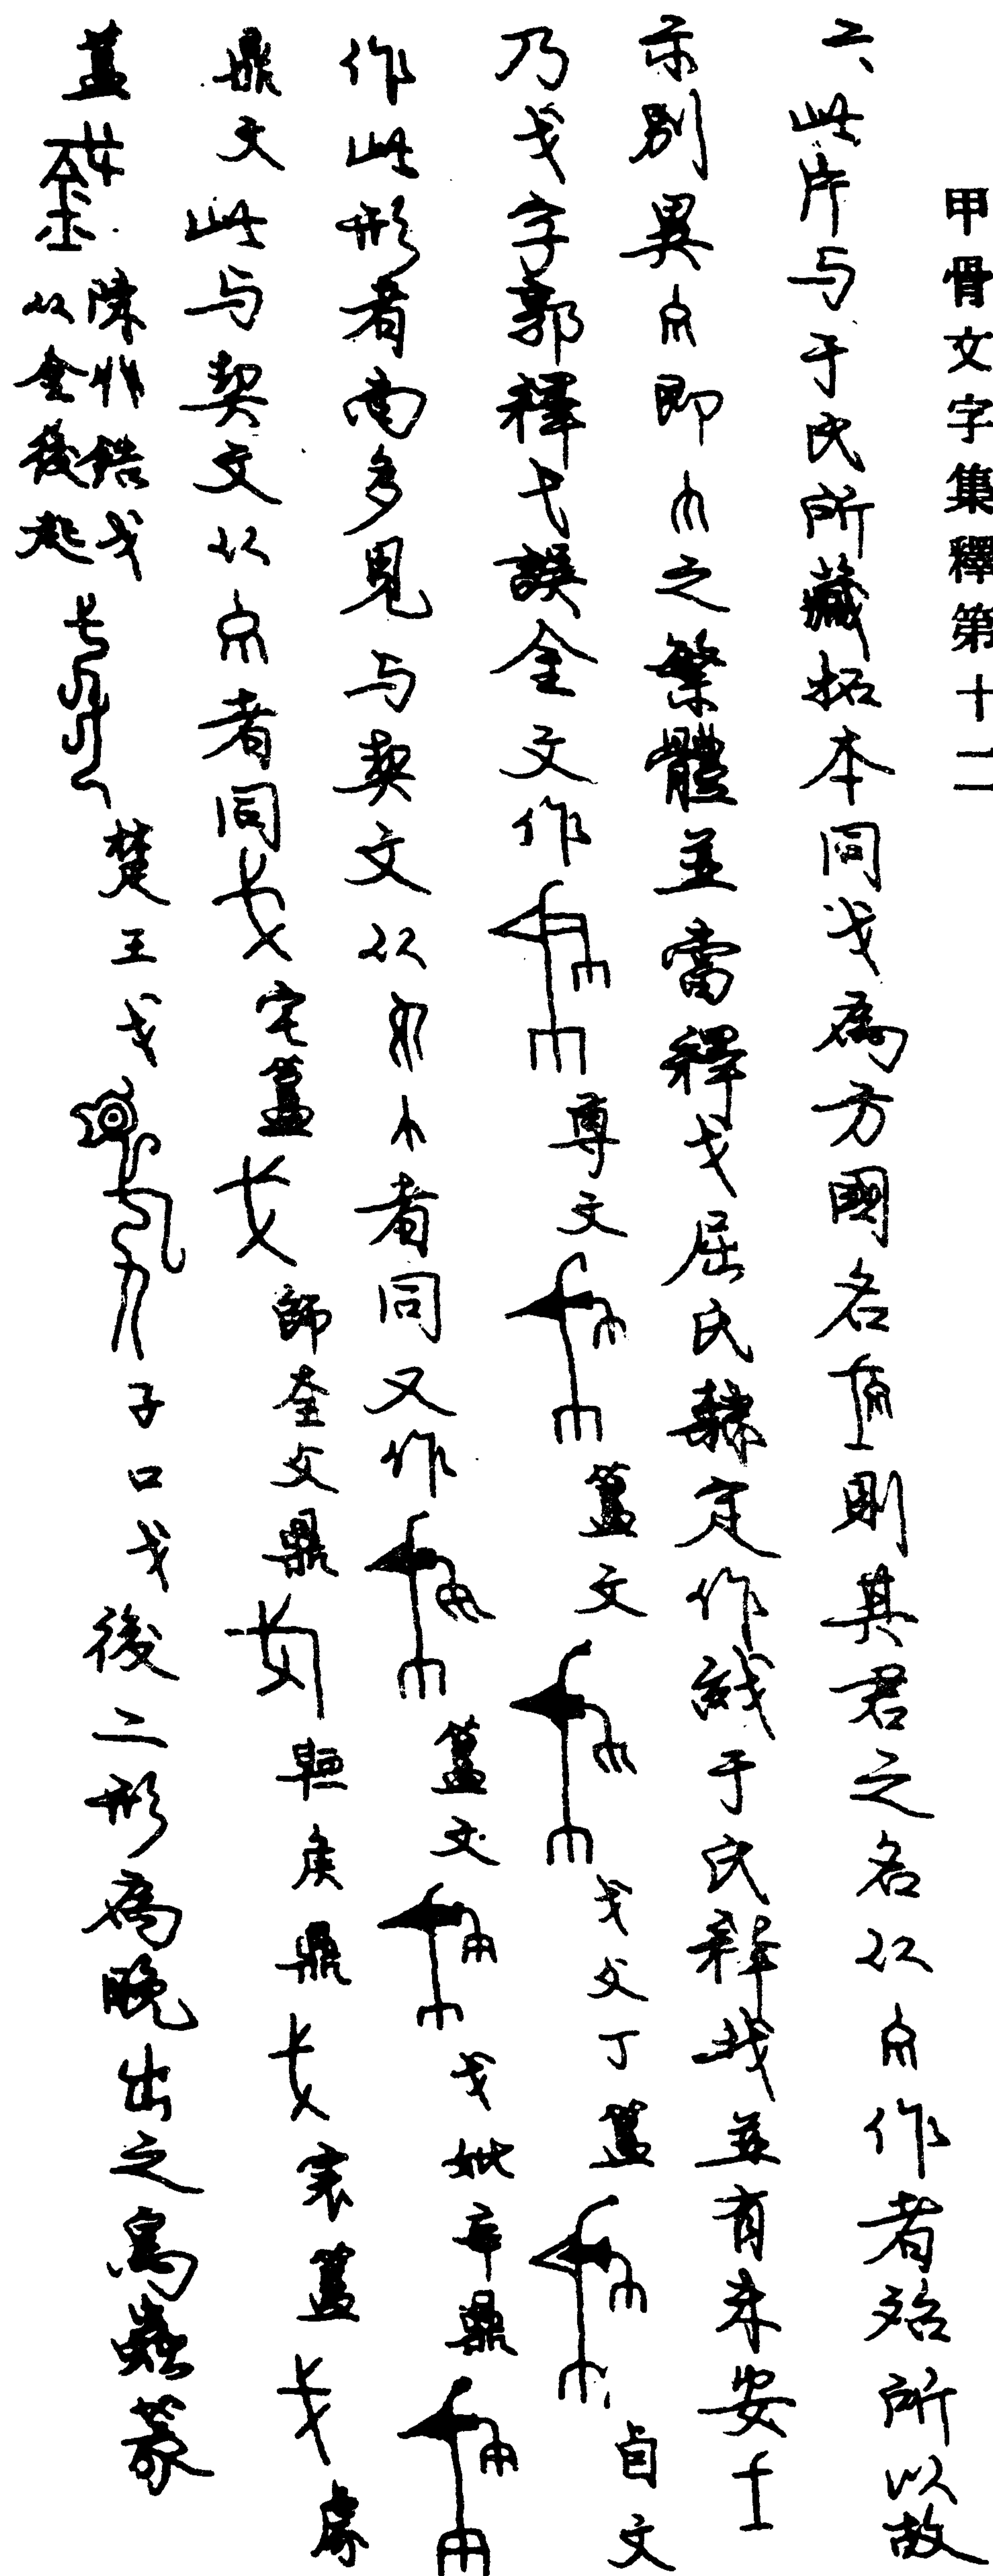 甲骨文字集釋第十二
六、此片与于氏所藏拓本同戈為方國名則其君之名以作者殆所以故
示別異即之繁體並當釋戈屈氏隸定作于氏釋並有未安
乃戈字郭釋弋誤金文作尊文簋文戈父丁簋卣文
作此形者尚多見与契文以者同又作簋文戈妣辛鼎
鼎文此与契文以者同宅簋師奎父鼎侯鼎袁簋
蓋陳戈从金後起楚王戈子口戈後二形為晚出之鳥蟲篆